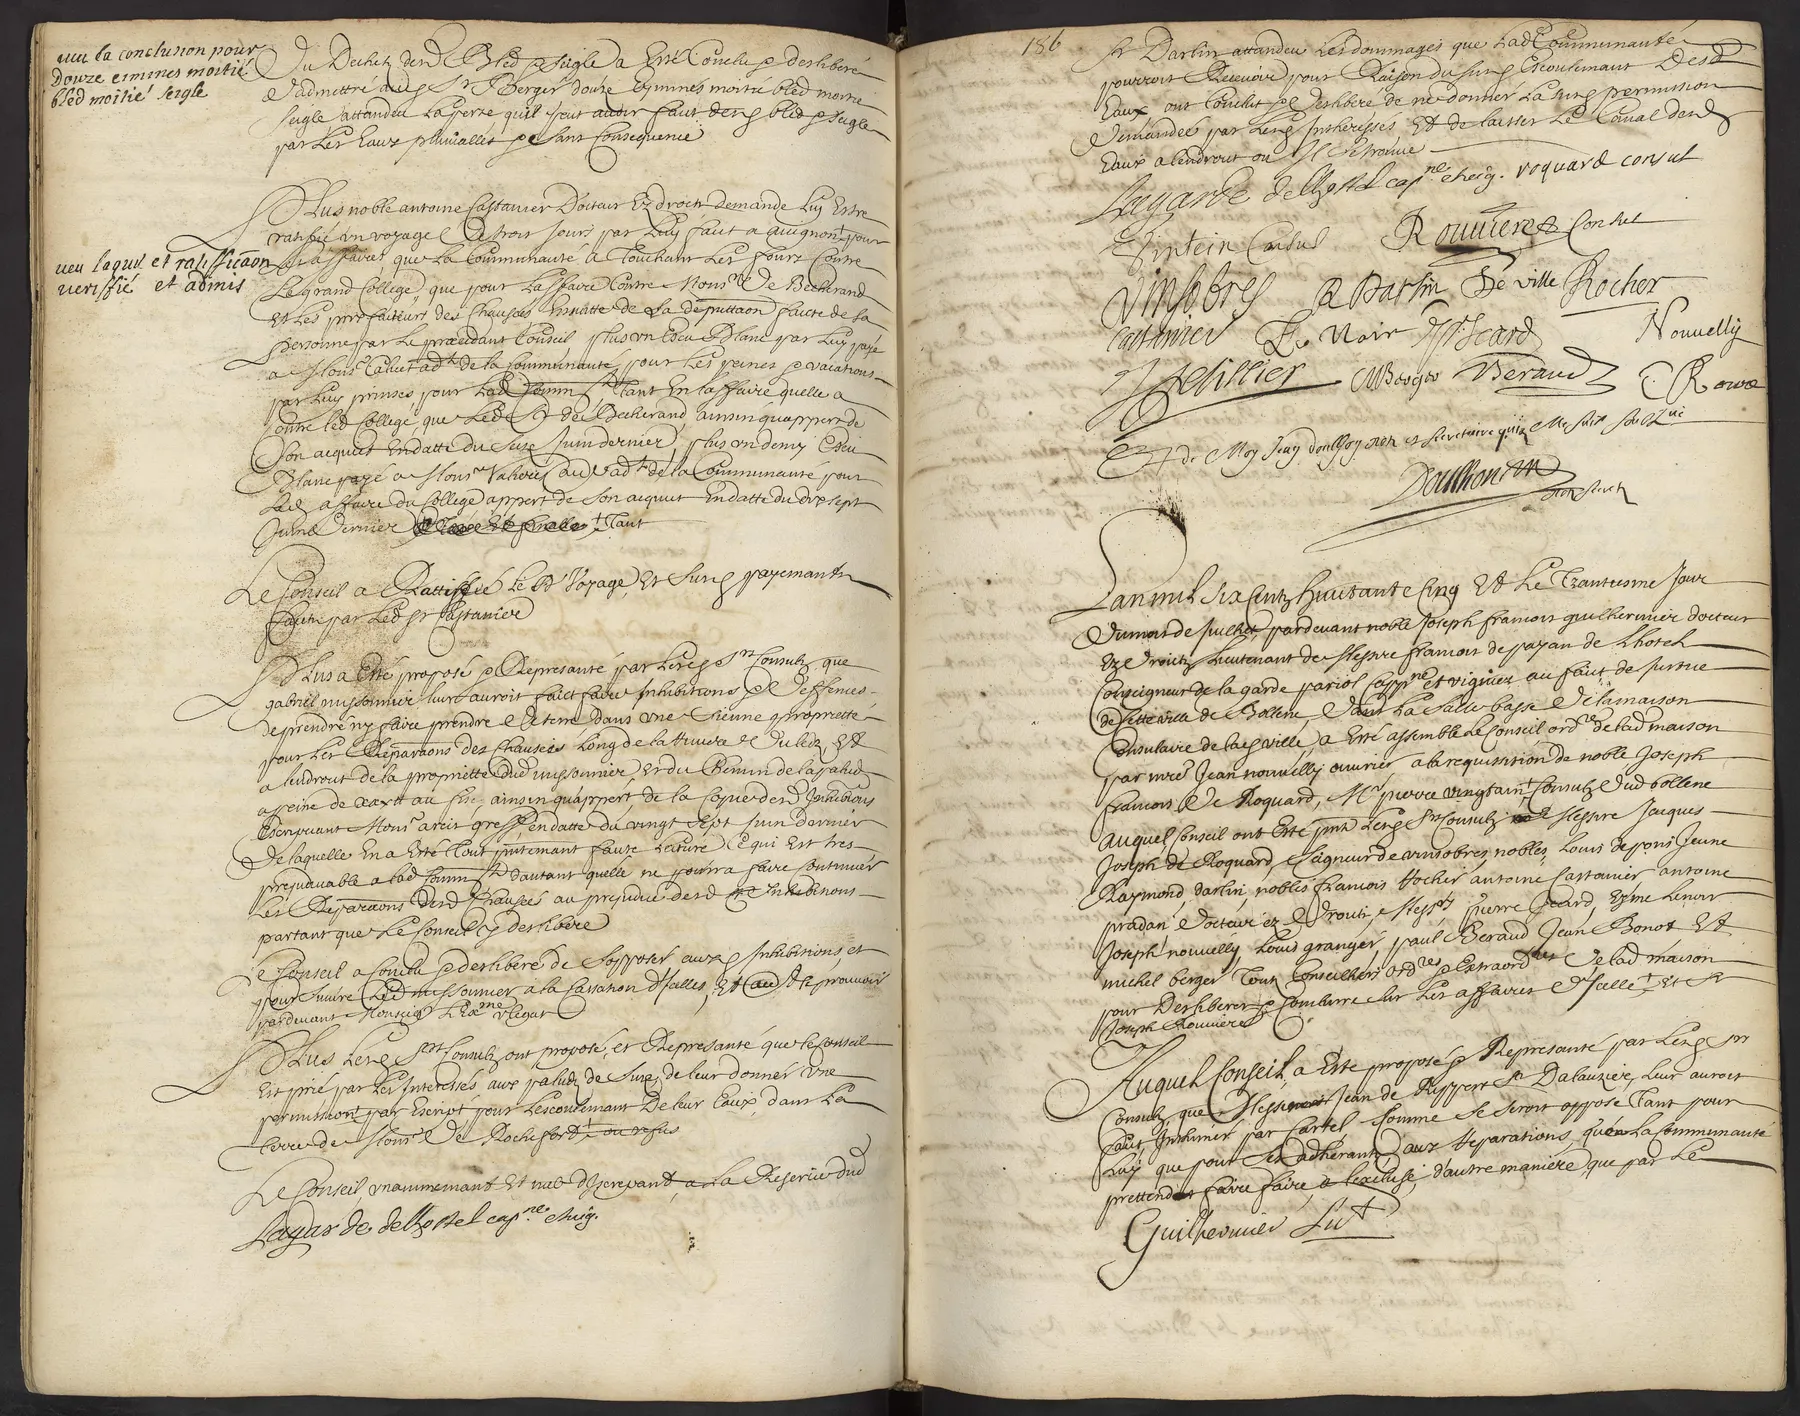 veu la conclusion pour
douze eimines moitié
bled moitié seigle
Du Dechet dud Bled & seigle a Esté Conclu & desliberé
d'admettré aud Sr Berger douze Eymines moitié bled moitié
seigle attandeu la perte quil peut avoir faict dud bled & seigle
par Les Eaux pluvialles & sans Consequence
Plus noble antoine Castanier Docteur Ez droitz demande Luy Estre
ratiffié un voyage de trois Jours par Luy faict a avignon pour
affaires que la Communauté a Touchant Les fours Contre
Le grand College, que pour Laffaire Contre Monsr De Becherand
Et Les prixfaiteurs des Chaussées Ensuitte de La deputtaon faicte de sa
personne par Le precedant Conseil plus un Escu Blanc par Luy payé
a Monsr Calvet adt de la Communauté pour Les peines & vacations
par Luy prinses pour Lad Commté Tant En Laffaire quelle a
Contre led College, que Led Sr de Becherand, ainsin quappert de
Son acquit En datte du Juin dernier, plus un demy Escu
Blanc payé a Monsr adt de la Communauté pour
Lad affaire du College appert de Son acquit En datte du dix sept
Juin dernier Tant
veu laquit et ratifficaon
veriffié et admis
Le Conseil a Rattiffié Le Sd Voyage, Et Susd payemantz
faictz par Led Sr Castanier
Plus a Esté proposé & Represanté par Lesd Srs Consulz que
gabriel missonnier Leurs auroit faict faire Inhibitions & deffences
de prendre ny faire prendre de terre dans une Sienne proprietté
pour Les Reparaons des Chaussées Long de la riviere du Lez, Et
a Lendroit de la proprietté dud missonnier, Et du Chemin de la palud
a peine de au fisc, ainsin quappert de la Copie desd Inhibions
Escripvant Monsr areit greff, en datte du vingt Sept Juin dernier
De laquelle En a Esté Tout presentemant faicte Lecture Ce qui Est tres
prejuduable a lad Commté dautant quelle ne pourra faire Continuer
Les Reparaons desd Chaussées au prejudice desd Inhibitions
partant que Le Conseil y deslibere
Le Conseil a Conclu & desliberé de Sopposer aux Inhibitions et
pour suivre Led missonnier a la Cassation d'Jcelles, Et au
pardevant Monseigr L'Exme vilegat
Plus Lesd Srs Consulz ont proposé, et Represanté que le Conseil
Est prié par Les Interessés aux paludz de Suze, de leur donner Une
permission par Escript pour Lescoulemant De leur Eaux, dans La
terre de Monsr De Rochefort ou refus
Le Conseil, unanimemant Et nul discrepant, a La Reserve dud
Lagarde de lhostel capne &c.
186
Sr Darlin attandeu Les dommages que Lad Communauté
pourroit Recevoir pour Raison du susd Escoulemant Desd
Eaux ont Conclu & desliberé de ne donner La susd permission
Demandée par Lesd Intheressés, Et de laisser Le Canal desd
Eaux a lendroit ou Il Se trouve
Lagarde de lhostel capne &c. roquard consul
Vintein Consul Rouviere Consul
Vinsobres R Darlin De ville Rocher
Castanier E. Noir Jcard Nouvelly
Pellissier MBerger Beraud
Et de Moy Jean
Lan mil six Centz huictante Cinq Et Le Trantiesme Jour
Du mois de Juillet, pardevant noble Joseph francois guilhermier docteur
Ez Droitz Lieutenant de Messire francois de payan de Lhostel
Conseigneur de la garde pariol Cappne et viguier au faict de Justice
de Cette ville de Bollene, Dans La Salle basse De la maison
Consulaire de lad ville, a Esté assemblé Le Conseil ordre de lad maison
par mre Jean nouvelly ouvrier a la requisition de noble Joseph
francois De Roquard, Mr pierre vingtain Consulz dud bollene
Auquel Conseil ont Esté pntz Lesd Srs Consulz Messire Jacques
Joseph de Roquard, Seigneur de vinsobres, nobles, Louis de pons Jeune
Raymond darlin, nobles francois Rocher antoine Castanier antoine
pradan Docteur ez Droitz, Messrs pierre Jcard, Esme Lenoir
Joseph nouvelly, Louis granger, paul Beraud Jean Bonot Et
michel berger Tous Conseilhers ordres & Extraordres De lad maison
pour Desliberer & Conclurre Sur Les affaires d'Jcelle Et Sr
Joseph Rouviere
Auquel Conseil, a Esté proposé & Represanté par Lesd Srs
Consulz que Messire Jean de Rippert Sr Dalauzier, Leur auroit
faict Inthimer par Cartel Comme Il Se Seroit opposé Tant pour
Luy que pour Ses adherantz aux Reparations, que La Communauté
prettend faire faire a lescluse, dautre maniere que par Le
Guilhermier Lieut